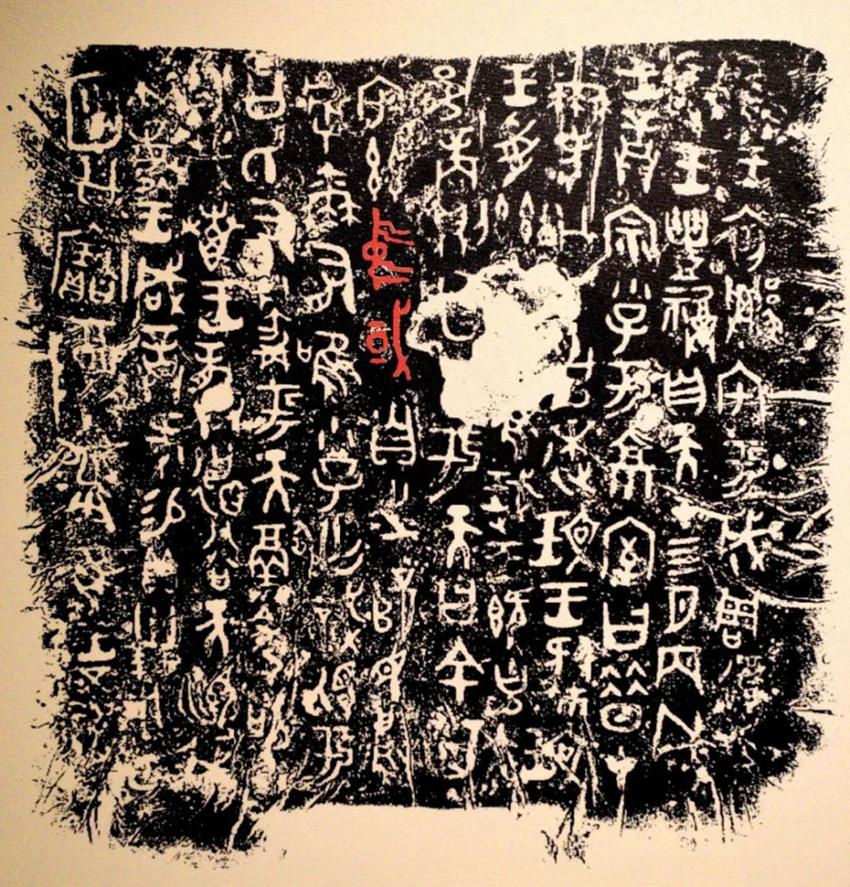 隹王初遷宅于成周復禀
珷王豊福自天才四月丙戌
王誥宗小子于京室曰昔才
爾考公氏克逨玟王肆玟
王受茲隹珷王既克大
邑商則廷告于天曰余其
宅茲中或自之乂民烏
虖爾有唯小子亡識視于
公氏有爵于天徹令苟
享哉唯王恭德谷天訓我
不敏王咸誥何易貝卅朋用乍
庾公寶尊彝隹王五祀